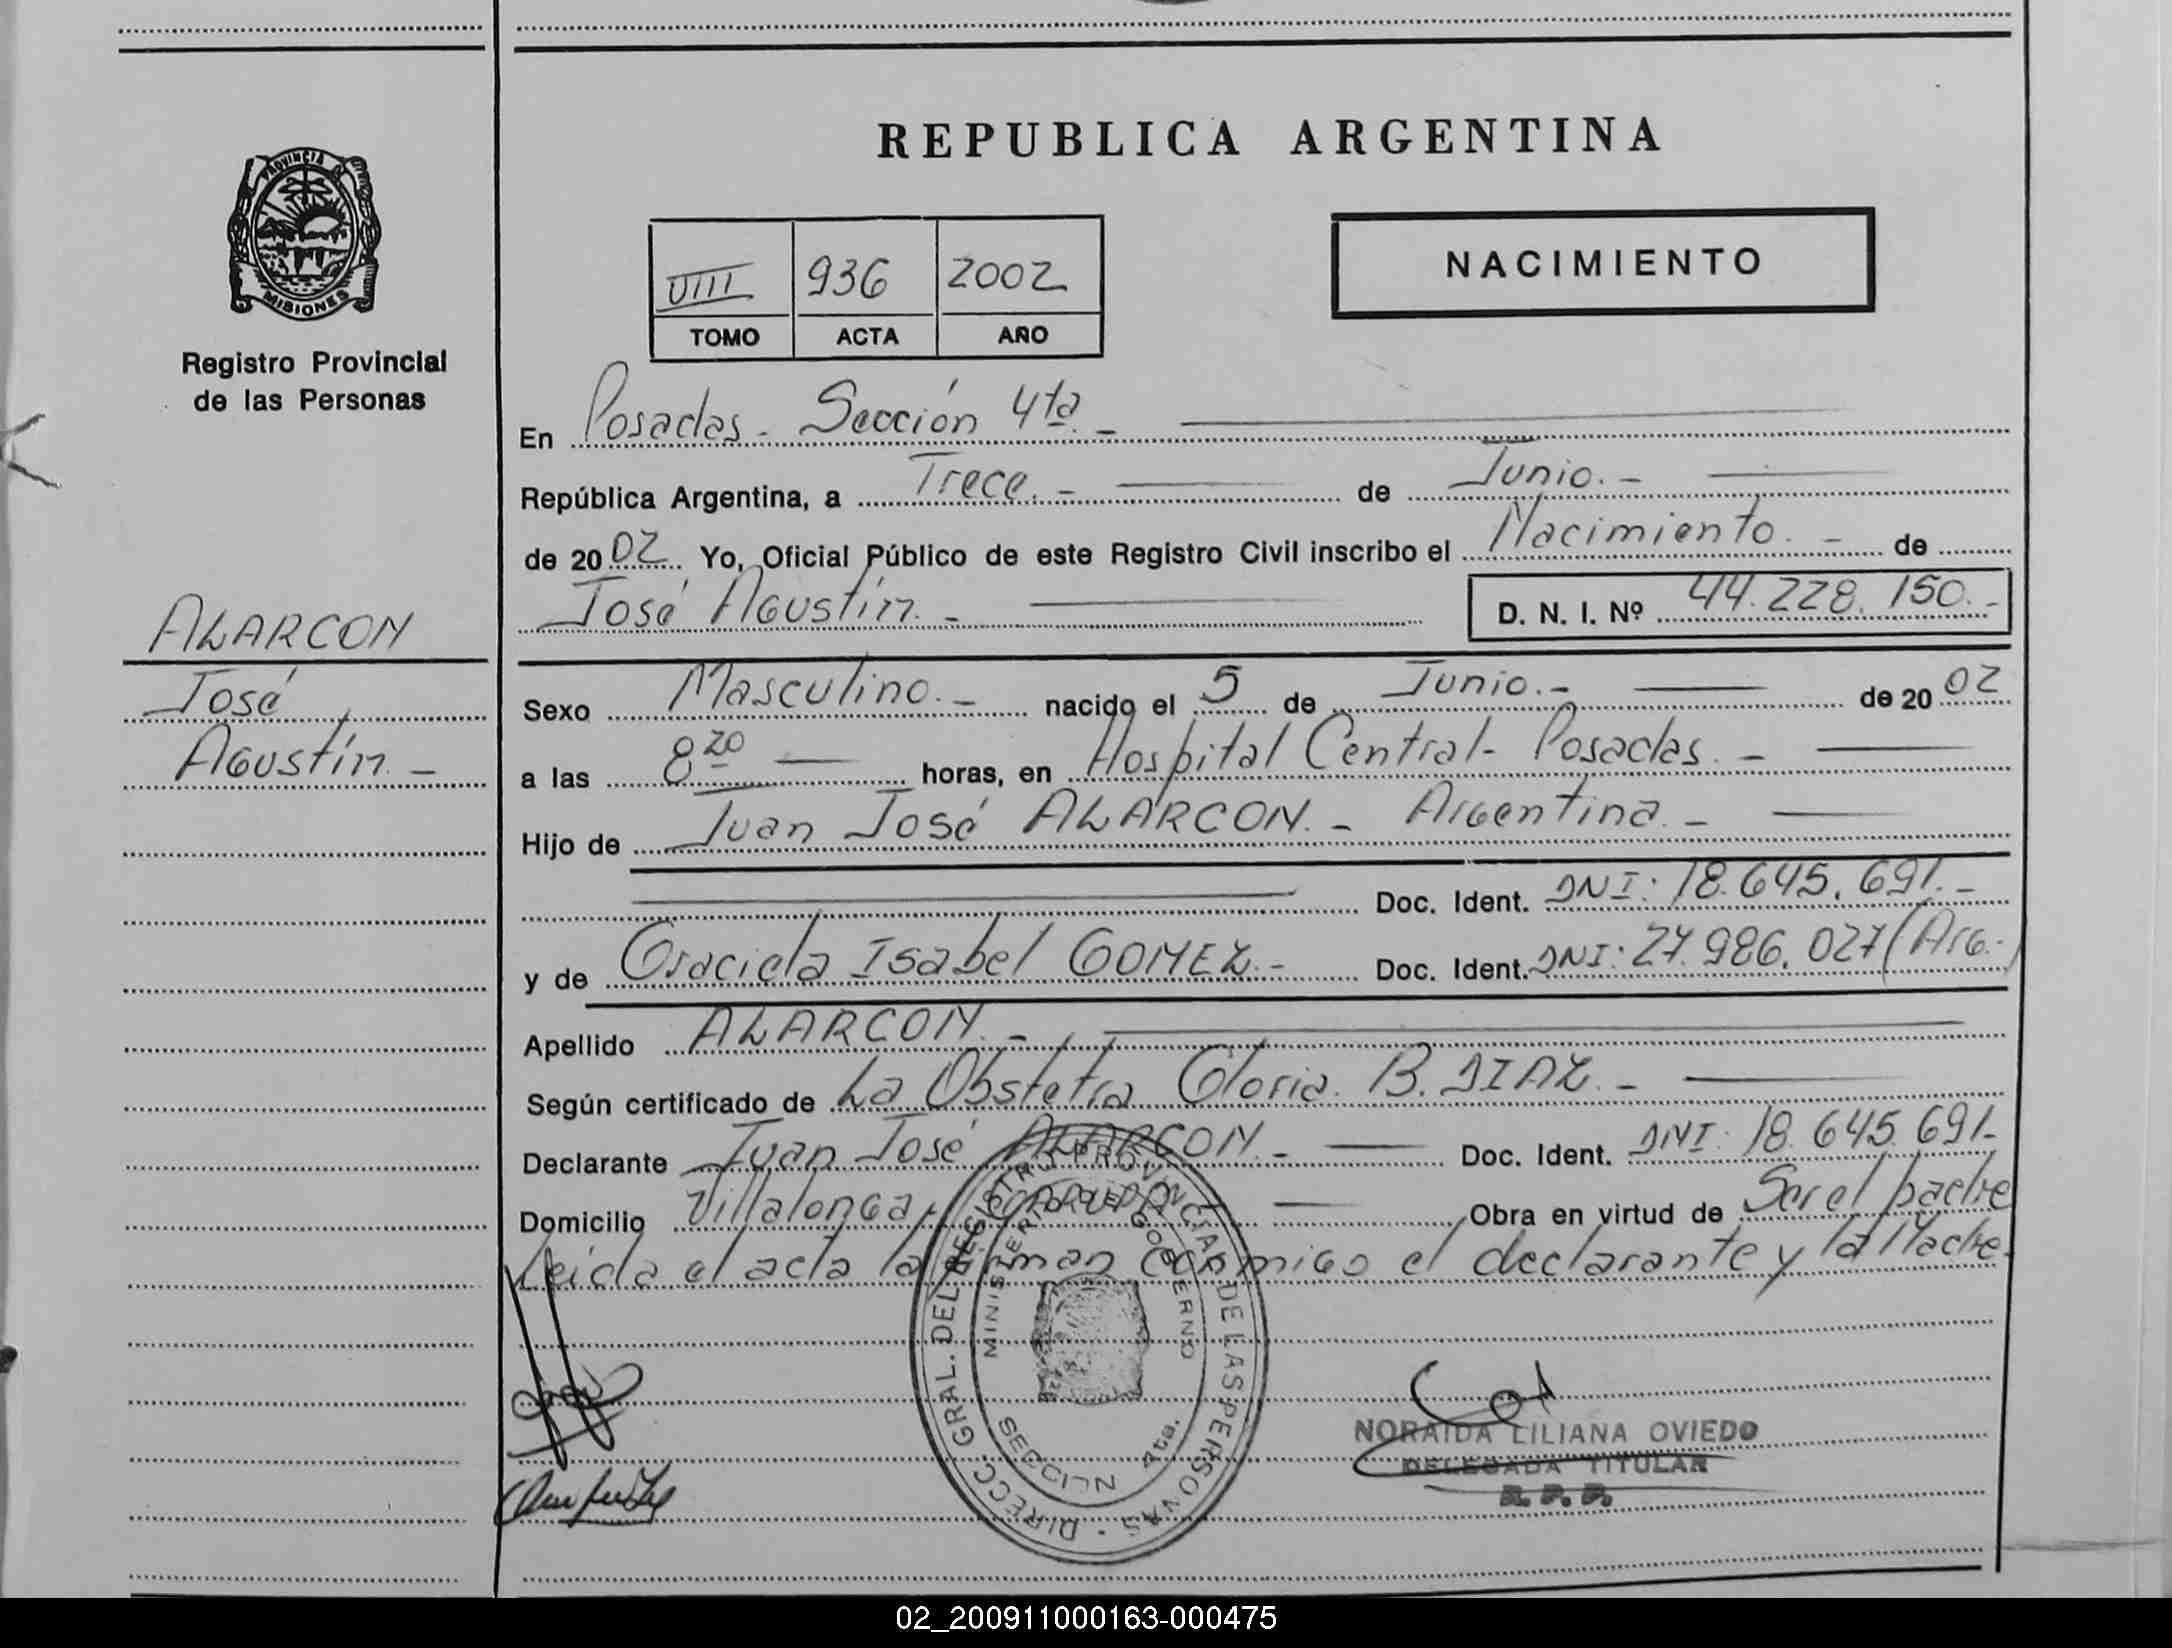 PROVINCIA DE
MISIONES
Registro Provincial
de las Personas
ALARCON
José
Agustín.-
REPUBLICA ARGENTINA
VIII 936 2002
TOMO ACTA AÑO
NACIMIENTO
En Posadas - Sección 4ta.-
República Argentina, a Trece.- de Junio.-
de 2002 Yo, Oficial Público de este Registro Civil inscribo el Nacimiento.- de
José Agustín.- D. N. I. Nº 44.228.150.-
Sexo Masculino.- nacido el 5 de Junio.- de 2002
a las 8 20 horas, en Hospital Central - Posadas.-
Hijo de Juan José ALARCON.- Argentina.-
Doc. Ident. DNI: 18.645.691.-
y de Graciela Isabel GOMEZ.- Doc. Ident. DNI: 27.986.027 (Arg.-)
Apellido ALARCON.-
Según certificado de La Obstetra Gloria B. DIAZ.-
Declarante Juan José ALARCON.- Doc. Ident. DNI: 18.645.691.-
Domicilio Villalonga, Obra en virtud de Ser el padre
Leida el acta la firman conmigo el declarante y la Madre.
DIRECC. GRAL. DEL REGISTRO PROVINCIAL DE LAS PERSONAS
MINISTERIO DE GOBIERNO
SECCION 4ta.
NORAIDA LILIANA OVIEDO
DELEGADA TITULAR
R. P. P.
02_200911000163-000475